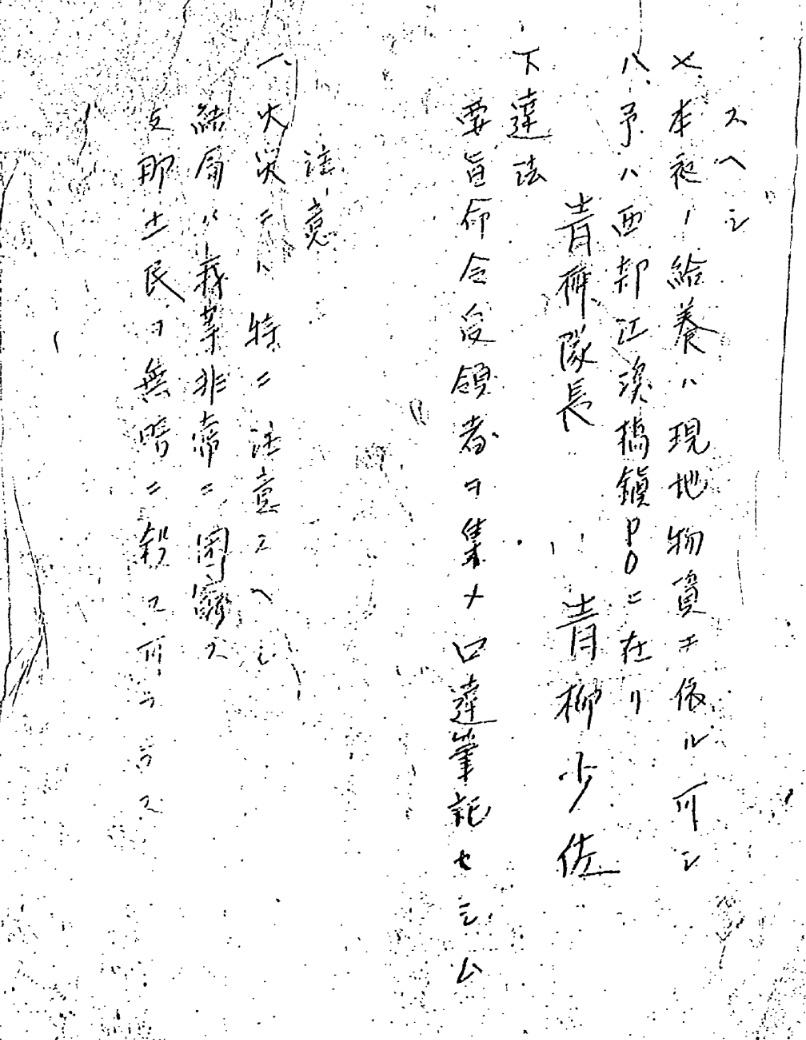 スヘシ
七、本夜ノ給養ハ現地物資ニ依ル可シ
八、予ハ西部江渓橋鎮POニ在リ
青柳隊長 青柳少佐
下達法
要旨命令受領者ヲ集メ口達筆記セシム
注意
一、火災ニハ特ニ注意スヘシ
結局ハ我等非常ニ困窮ス
支那土民ヲ無暗ニ殺ス可ラス